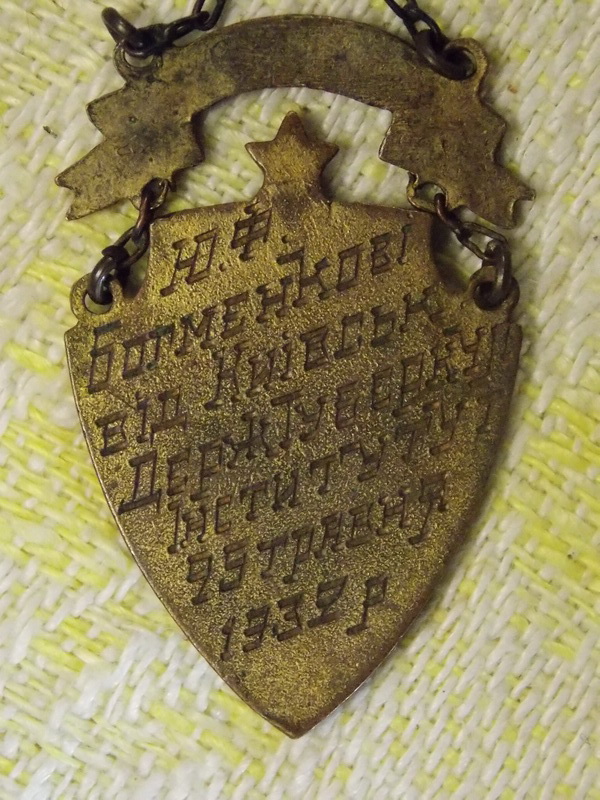 Ю.Ф.
Богменкові
від Київськ.
ДержТуберкул
Інституту
25 травня
1932 р